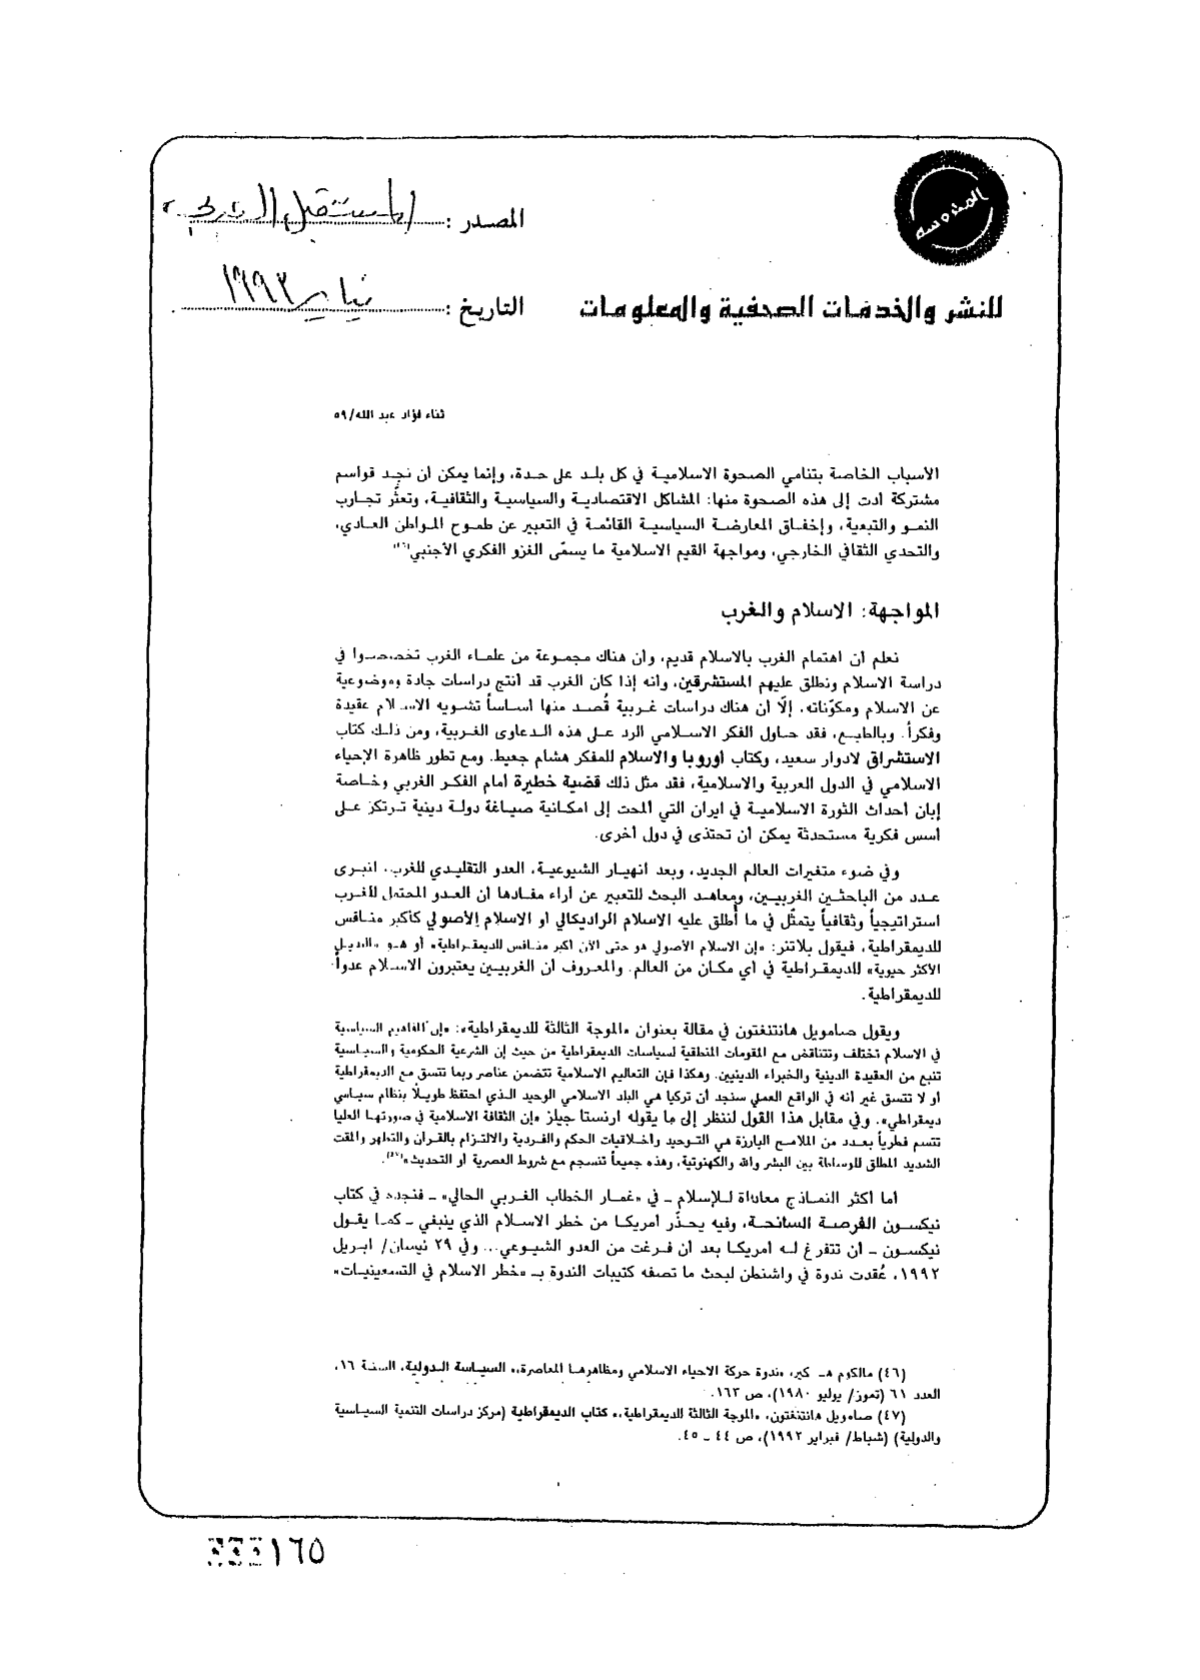 المحروسة
المصدر : المستقبل العربي
للنشر والخدمات الصحفية والمعلومات
التاريخ : يناير ١٩٩٣
ثناء فؤاد عبد الله/٥٩
الأسباب الخاصة بتنامي الصحوة الاسلامية في كل بلد على حدة، وإنما يمكن أن نجد قواسم
مشتركة أدت إلى هذه الصحوة منها: المشاكل الاقتصادية والسياسية والثقافية، وتعثّر تجارب
النمو والتبعية، وإخفاق المعارضة السياسية القائمة في التعبير عن طموح المواطن العادي،
والتحدي الثقافي الخارجي، ومواجهة القيم الاسلامية ما يسمّى الغزو الفكري الأجنبي(٤٦)
المواجهة: الاسلام والغرب
نعلم أن اهتمام الغرب بالاسلام قديم، وأن هناك مجموعة من علماء الغرب تخصصوا في
دراسة الاسلام ونطلق عليهم المستشرقين، وانه إذا كان الغرب قد أنتج دراسات جادة وموضوعية
عن الاسلام ومكوّناته، إلّا أن هناك دراسات غربية قُصد منها أساساً تشويه الاسلام عقيدة
وفكراً. وبالطبع، فقد حاول الفكر الاسلامي الرد على هذه الدعاوى الغربية، ومن ذلك كتاب
الاستشراق لادوار سعيد، وكتاب أوروبا والاسلام للمفكر هشام جعيط. ومع تطور ظاهرة الإحياء
الاسلامي في الدول العربية والاسلامية، فقد مثل ذلك قضية خطيرة أمام الفكر الغربي وخاصة
إبان أحداث الثورة الاسلامية في ايران التي ألمحت إلى امكانية صياغة دولة دينية ترتكز على
أسس فكرية مستحدثة يمكن أن تحتذى في دول أخرى.
وفي ضوء متغيرات العالم الجديد، وبعد انهيار الشيوعية، العدو التقليدي للغرب، انبرى
عدد من الباحثين الغربيين، ومعاهد البحث للتعبير عن آراء مفادها أن العدو المحتمل للغرب
استراتيجياً وثقافياً يتمثّل في ما أُطلق عليه الاسلام الراديكالي أو الاسلام الأصولي كأكبر منافس
للديمقراطية، فيقول بلاتنر: «إن الاسلام الأصولي هو حتى الآن أكبر منافس للديمقراطية» أو هو «البديل
الأكثر حيوية» للديمقراطية في أي مكان من العالم. والمعروف أن الغربيين يعتبرون الاسلام عدواً
للديمقراطية.
ويقول صامويل هانتنغتون في مقالة بعنوان «الموجة الثالثة للديمقراطية»: «إن المفاهيم السياسية
في الاسلام تختلف وتتناقض مع المقومات المنطقية لسياسات الديمقراطية من حيث إن الشرعية الحكومية والسياسية
تنبع من العقيدة الدينية والخبراء الدينيين. وهكذا فإن التعاليم الاسلامية تتضمن عناصر ربما تتسق مع الديمقراطية
أو لا تتسق غير أنه في الواقع العملي سنجد أن تركيا هي البلد الاسلامي الوحيد الذي احتفظ طويلاً بنظام سياسي
ديمقراطي». وفي مقابل هذا القول لننظر إلى ما يقوله ارنستا جيلز «إن الثقافة الاسلامية في صورتها العليا
تتسم فطرياً بعدد من الملامح البارزة هي التوحيد واخلاقيات الحكم والفردية والالتزام بالقرآن والتطهر والمقت
الشديد المطلق للوساطة بين البشر والله والكهنوتية، وهذه جميعاً تنسجم مع شروط العصرية أو التحديث»(٤٧).
أما أكثر النماذج معاداة للإسلام - في «غمار الخطاب الغربي الحالي» - فنجده في كتاب
نيكسون الفرصة السانحة، وفيه يحذّر أمريكا من خطر الاسلام الذي ينبغي - كما يقول
نيكسون - أن تتفرغ له أمريكا بعد أن فرغت من العدو الشيوعي... وفي ٢٩ نيسان/ ابريل
١٩٩٢، عُقدت ندوة في واشنطن لبحث ما تصفه كتيبات الندوة بـ «خطر الاسلام في التسعينيات»
(٤٦) مالكوم هـ. كير، «ندوة حركة الاحياء الاسلامي ومظاهرها المعاصرة،» السياسة الدولية، السنة ١٦،
العدد ٦١ (تموز/ يوليو ١٩٨٠)، ص ١٦٣.
(٤٧) صامويل هانتنغتون، «الموجة الثالثة للديمقراطية،» كتاب الديمقراطية (مركز دراسات التنمية السياسية
والدولية) (شباط/ فبراير ١٩٩٢)، ص ٤٤ - ٤٥.
١٦٥